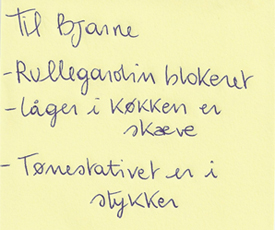 Til Bjarne
- Rullegardin blokeret
- Låger i køkken er
skæve
- Tørrestativet er i
stykker